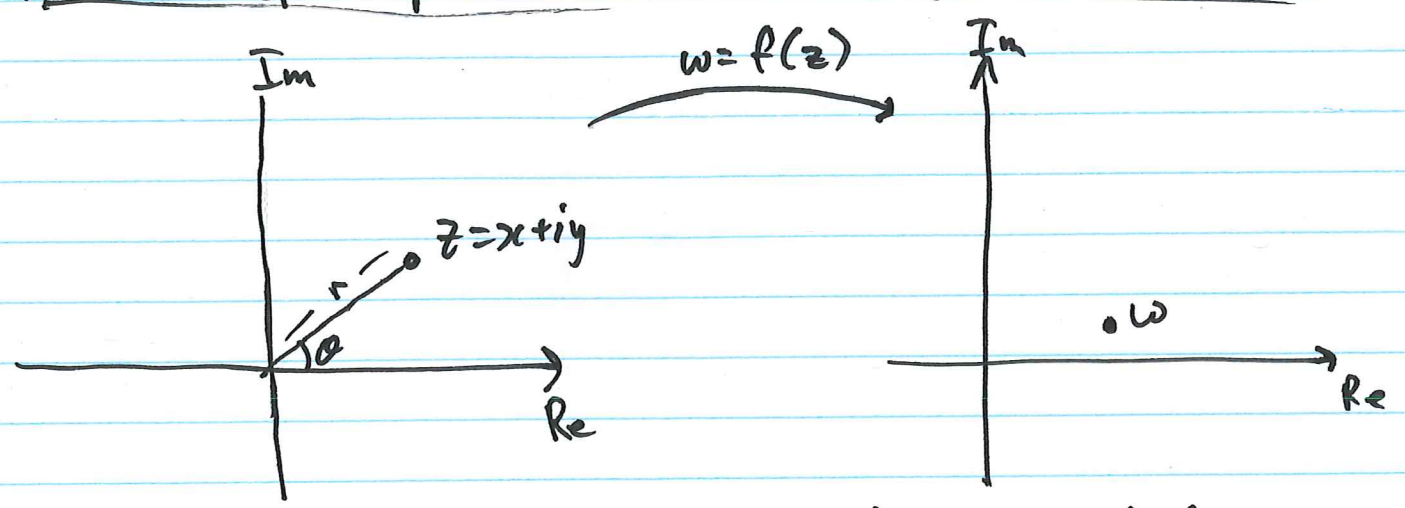 Im
w=f(z)
Im
z=x+iy
r
θ
Re
.w
Re